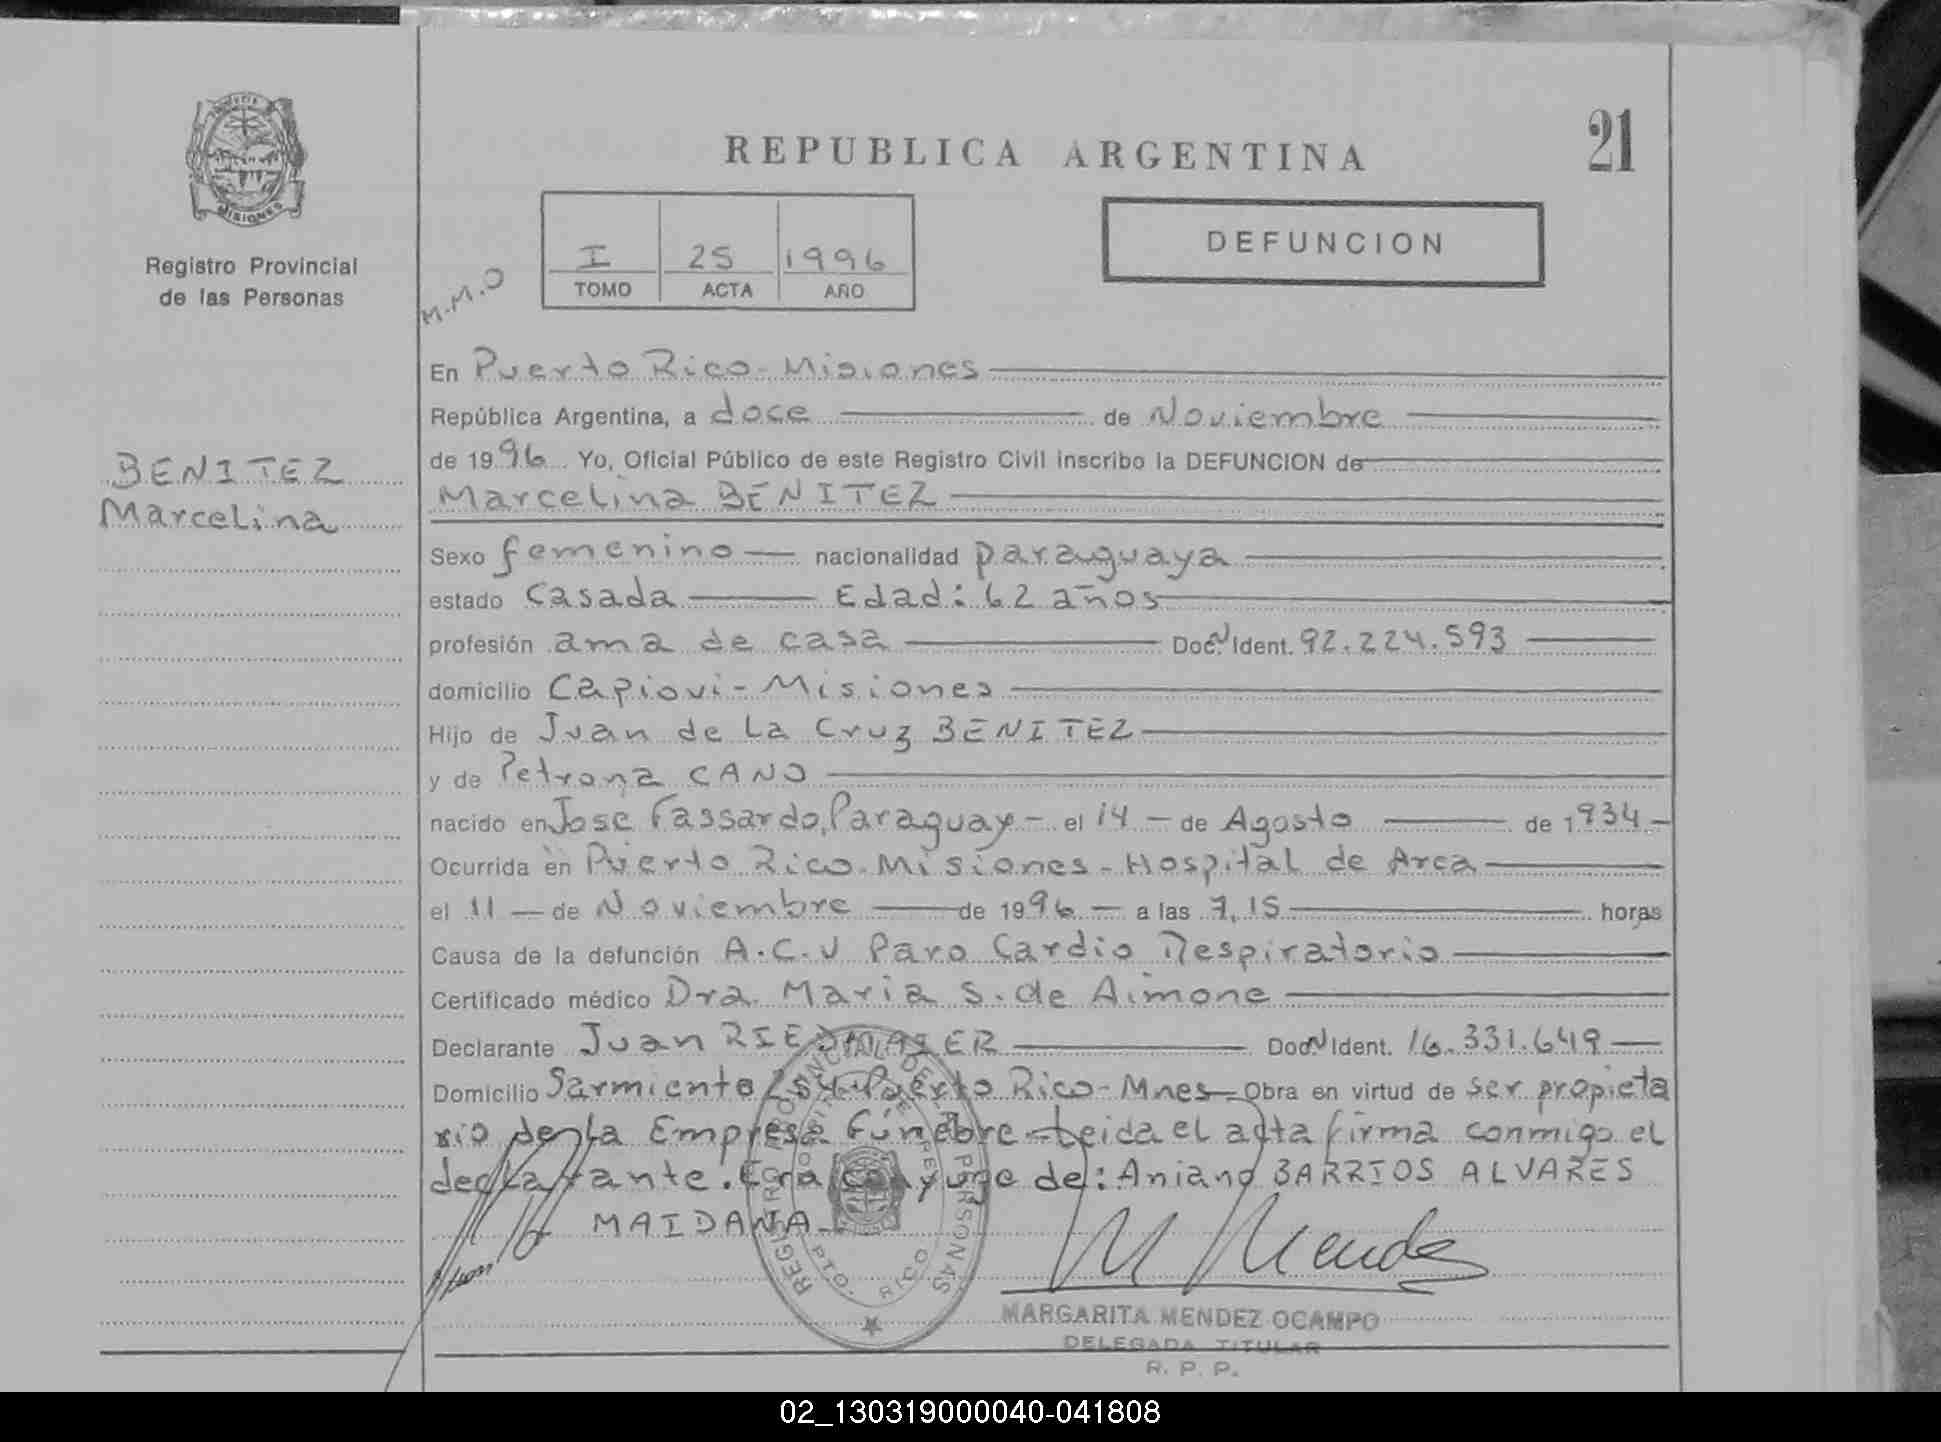 REPUBLICA ARGENTINA
21
MISIONES
Registro Provincial
de las Personas
I 25 1996
TOMO ACTA AÑO
DEFUNCION
M.M.O
En Puerto Rico - Misiones
República Argentina, a doce de Noviembre
de 1996 Yo, Oficial Público de este Registro Civil inscribo la DEFUNCION de
BENITEZ
Marcelina
Marcelina BENITEZ
Sexo femenino nacionalidad paraguaya
estado casada Edad: 62 años
profesión ama de casa Doc. N Ident. 92.224.593
domicilio Capiovi - Misiones
Hijo de Juan de La Cruz BENITEZ
y de Petrona CANO
nacido en José Fassardo, Paraguay - el 14 - de Agosto de 1934 -
Ocurrida en Puerto Rico - Misiones - Hospital de Area
el 11 - de Noviembre de 1996 - a las 7,15 horas
Causa de la defunción A.C.V Paro Cardio Respiratorio
Certificado médico Dra. Maria S. de Aimone
Declarante Juan RIEDMAIER Doc. N Ident. 16.331.649
Domicilio Sarmiento 254 - Puerto Rico - Mnes - Obra en virtud de ser propieta
rio de la Empresa Fúnebre - Leida el acta firma conmigo el
declarante. Era conyuge de: Aniano BARRIOS ALVARES
MAIDANA -
REGISTRO PROVINCIAL DE LAS PERSONAS
PTO. RICO
M Mendez
MARGARITA MENDEZ OCAMPO
DELEGADA TITULAR
R. P. P.
02_130319000040-041808